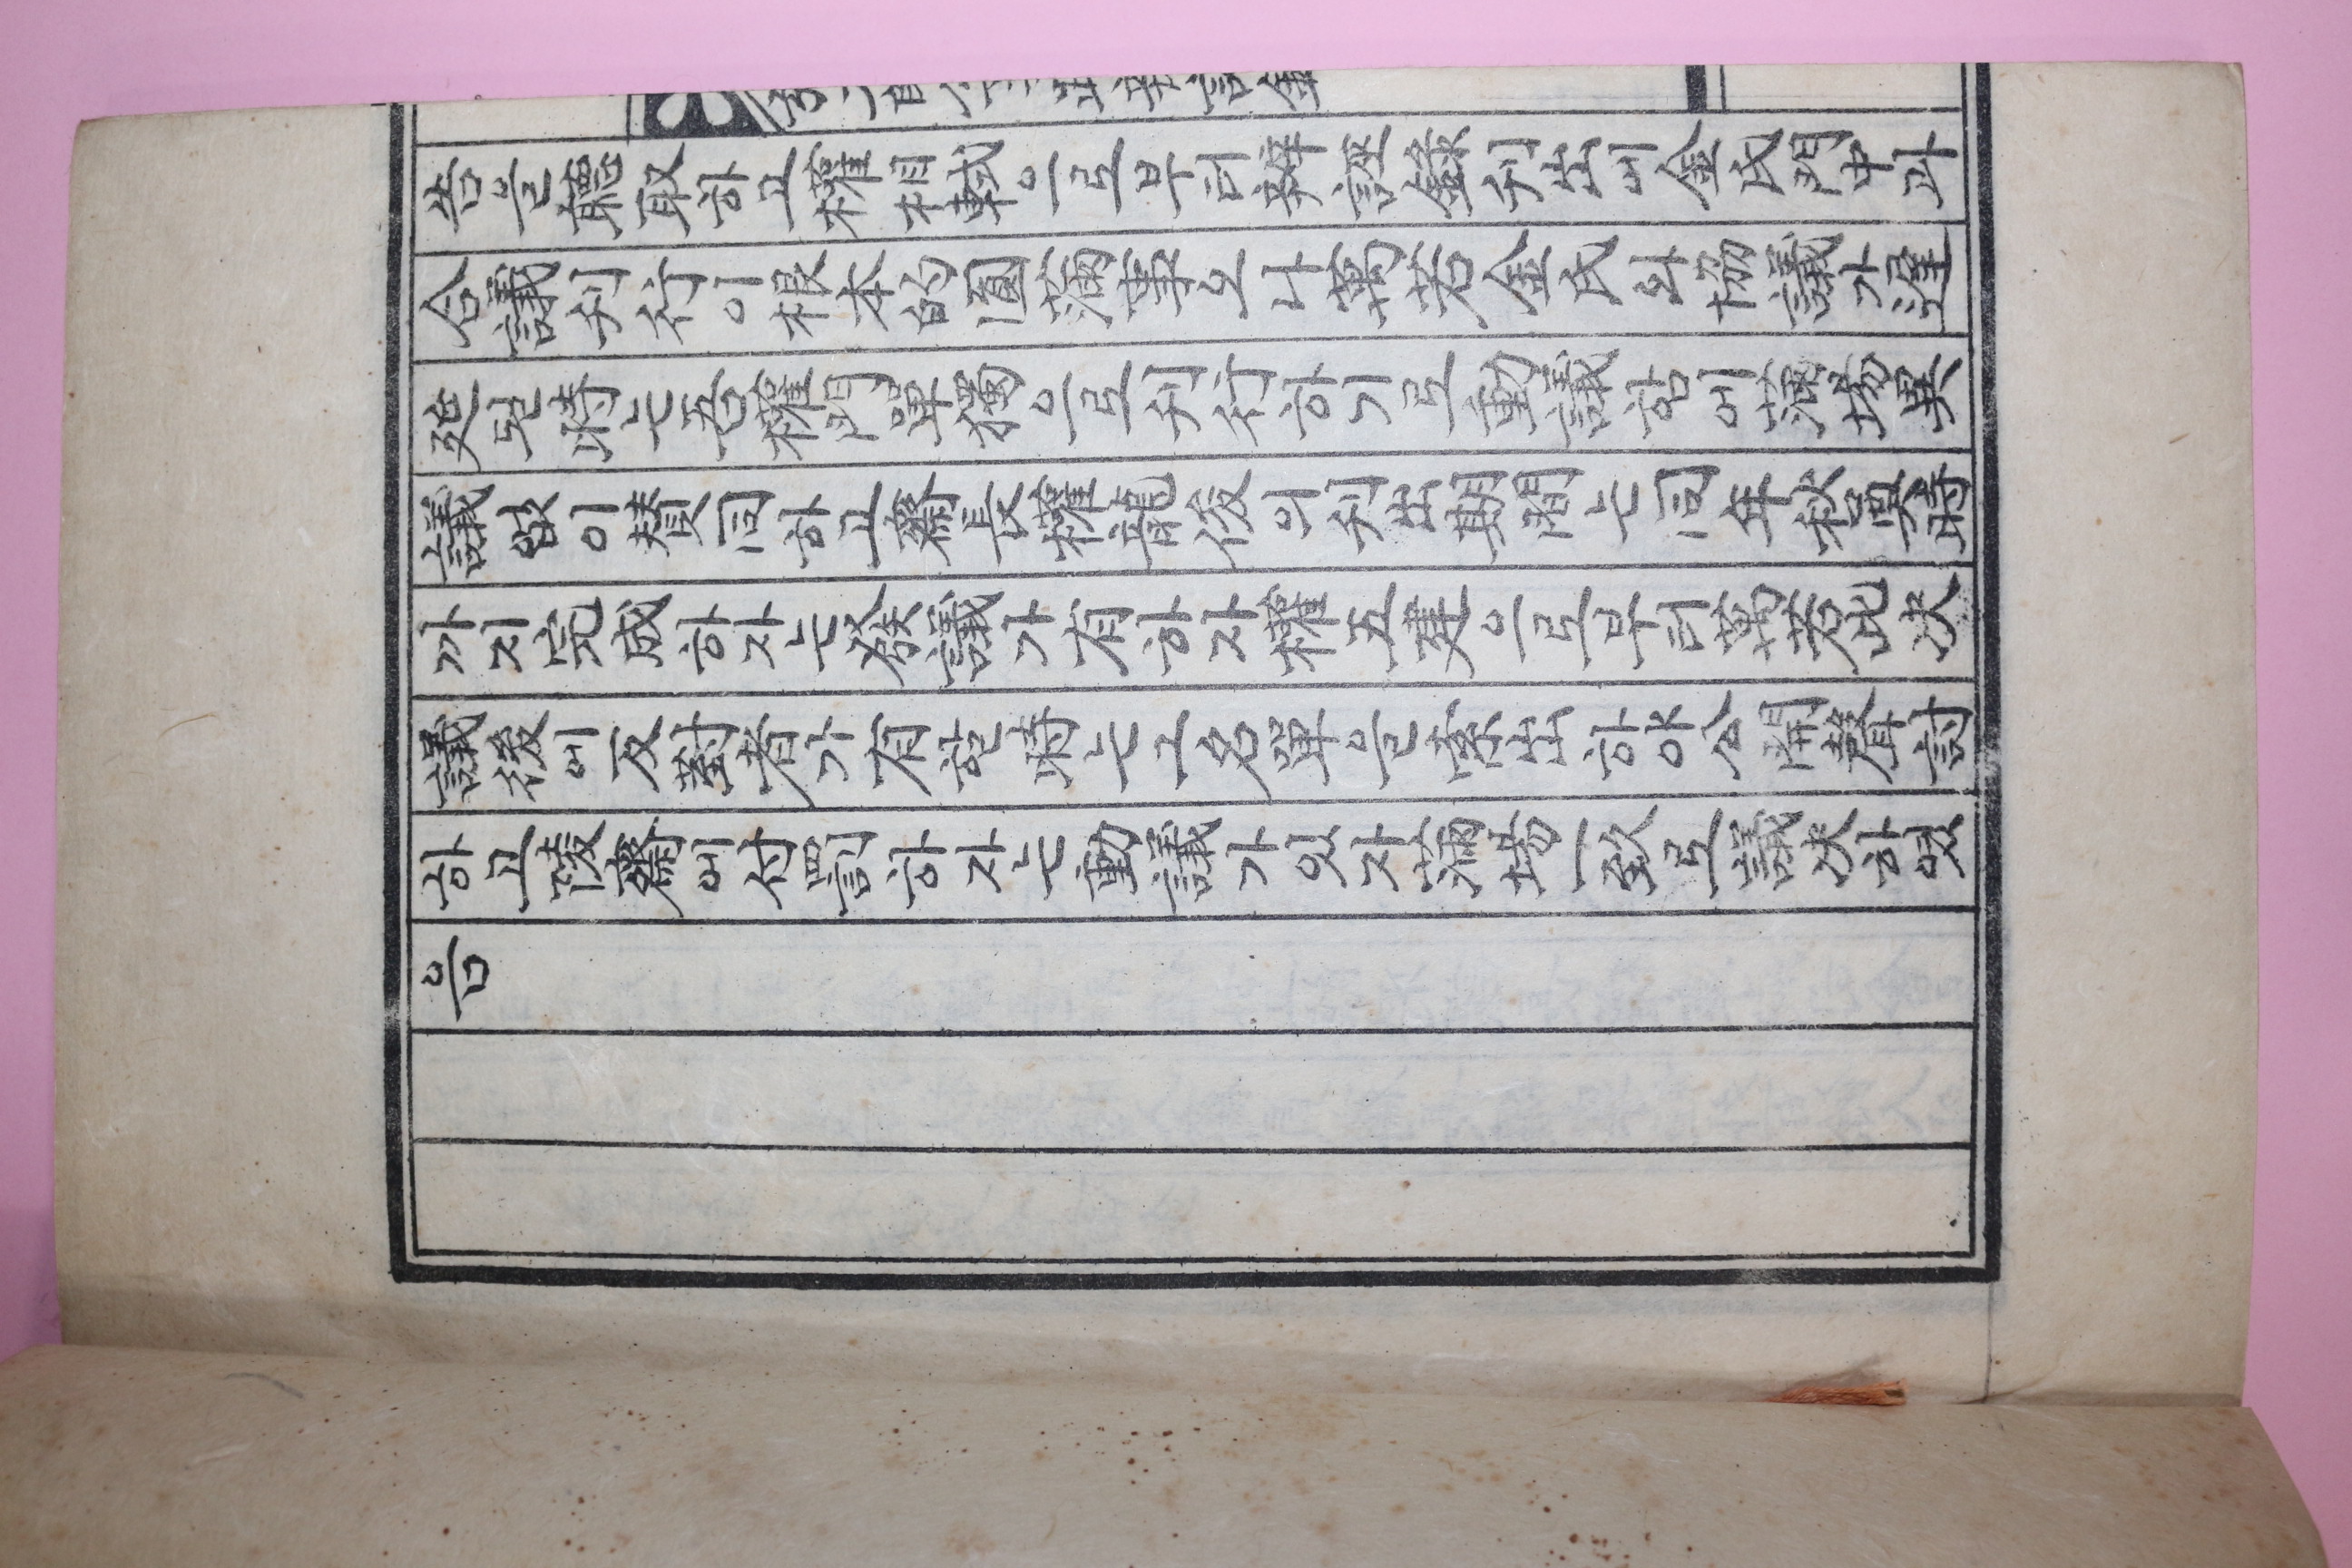 告을聽取하고權相軾으로부터辨誣錄刊出에金氏門中과
合議刊行이根本的圓滿事오나萬若金氏와協議가遲
延된時는吾權門單獨으로刊行하기로動議함에滿場異
議없이賛同하고齋長權龍俊의刊出期間는同年秋奠時
까지完成하자는發議가有하자權五建으로부터萬若此决
議後에反對者가有할時는그名單을索出하야公開聲討
하고陵齋에付罰하자는動議가있자滿場一致로議决하였
음